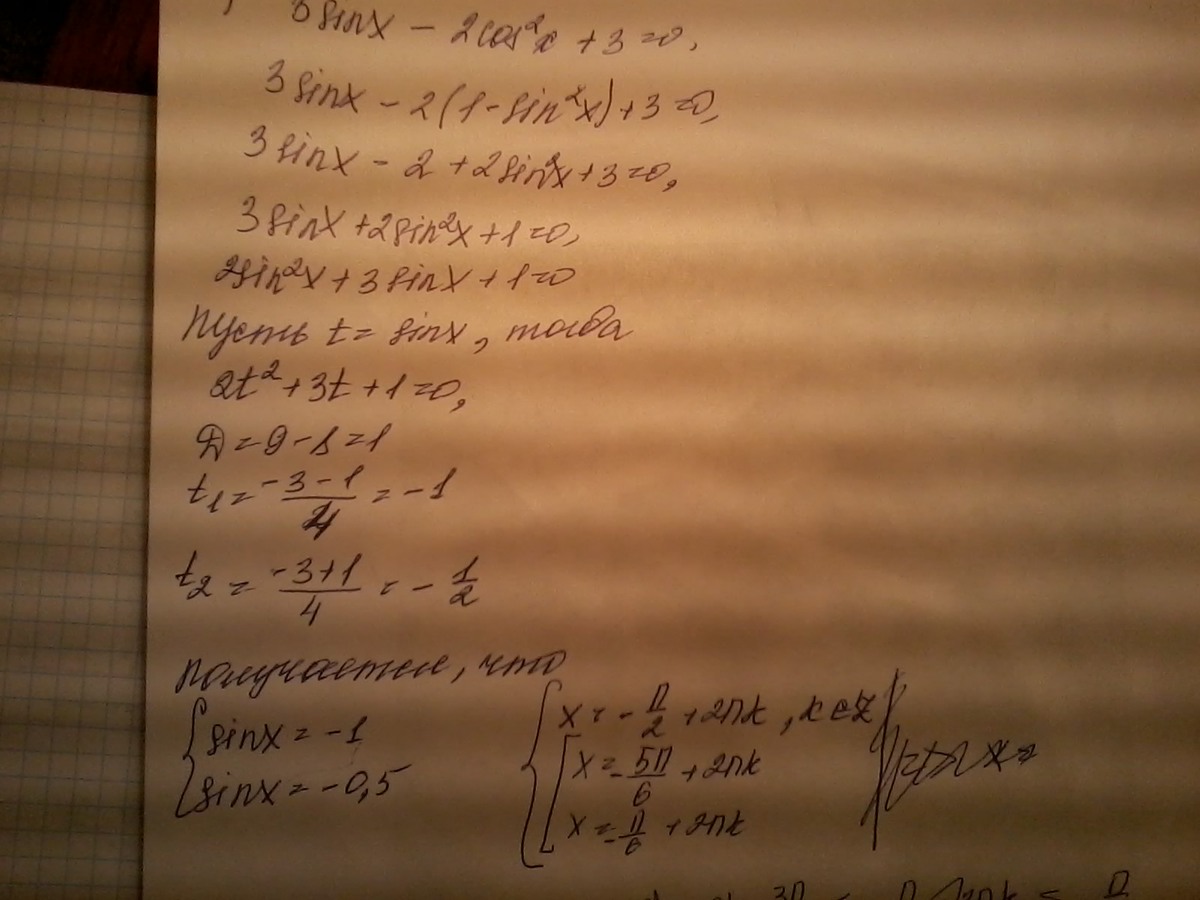 3 sinx - 2cos²x + 3 = 0,
3 sinx - 2(1 - sin²x) + 3 = 0,
3 sinx - 2 + 2sin²x + 3 = 0,
3 sinx + 2sin²x + 1 = 0,
2sin²x + 3 sinx + 1 = 0
Пусть t = sinx, тогда
2t² + 3t + 1 = 0,
D = 9 - 8 = 1
t₁ = (-3 - 1)/4 = -1
t₂ = (-3 + 1)/4 = - 1/2
Получается, что
{ sinx = -1
sinx = -0,5
{ x = - π/2 + 2πk, k ∈ Z
[ x = - 5π/6 + 2πk
x = - π/6 + 2πk